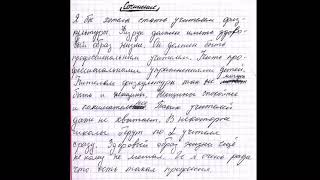 Сочинение
Я бы хотела стать учителем физ
культуры. Физрук должен иметь здоро-
вый образ жизни. Он должен быть
профессиональным учителем. Учить про-
фессиональными упражнениями детей.
Учителем физкультуры тоже может
быть и женщина. Женщины спокойнее
и внимательнее. Таких учителей
даже не хватает. В некоторые
школы берут по 2 учителя
сразу. Здоровый образ жизни ещё
не кому не мешал. И я очень рада
что есть такая профессия.